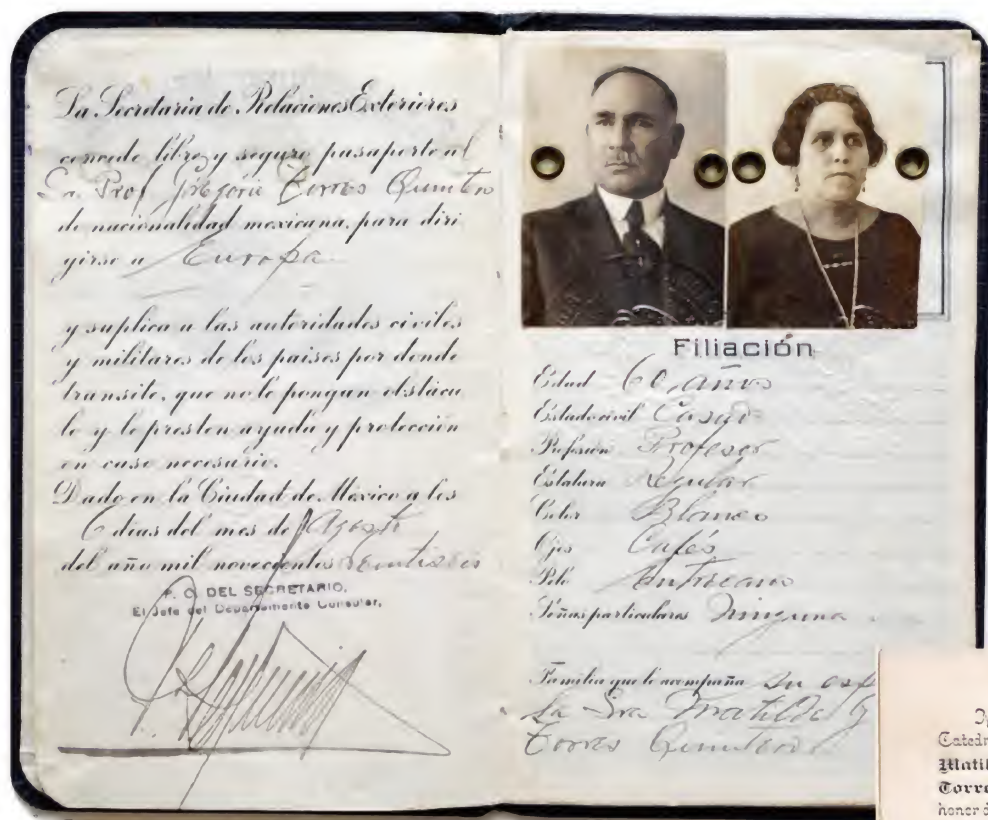 La Secretaría de Relaciones Exteriores
concede libre y seguro pasaporte al
Sr. Prof. Gregorio Torres Quintero
de nacionalidad mexicana, para diri
girse a Europa
y suplica a las autoridades civiles
y militares de los paises por donde
transite, que no le pongan obstácu
lo y le presten ayuda y protección
en caso necesario.
Dado en la Ciudad de México a los
6 dias del mes de Agosto
del año mil novecientos veintiseis
P. O. DEL SECRETARIO,
El Jefe del Departamento Consular,
Filiación
Edad 60 años
Estado civil Casado
Profesión Profesor
Estatura Regular
Color Blanco
Ojos Cafés
Pelo Entrecano
Señas particulares Ninguna
Familia que le acompaña su esp
la Sra Matilde G
Torres Quintero
Catedr
Matil
Torre
honor d